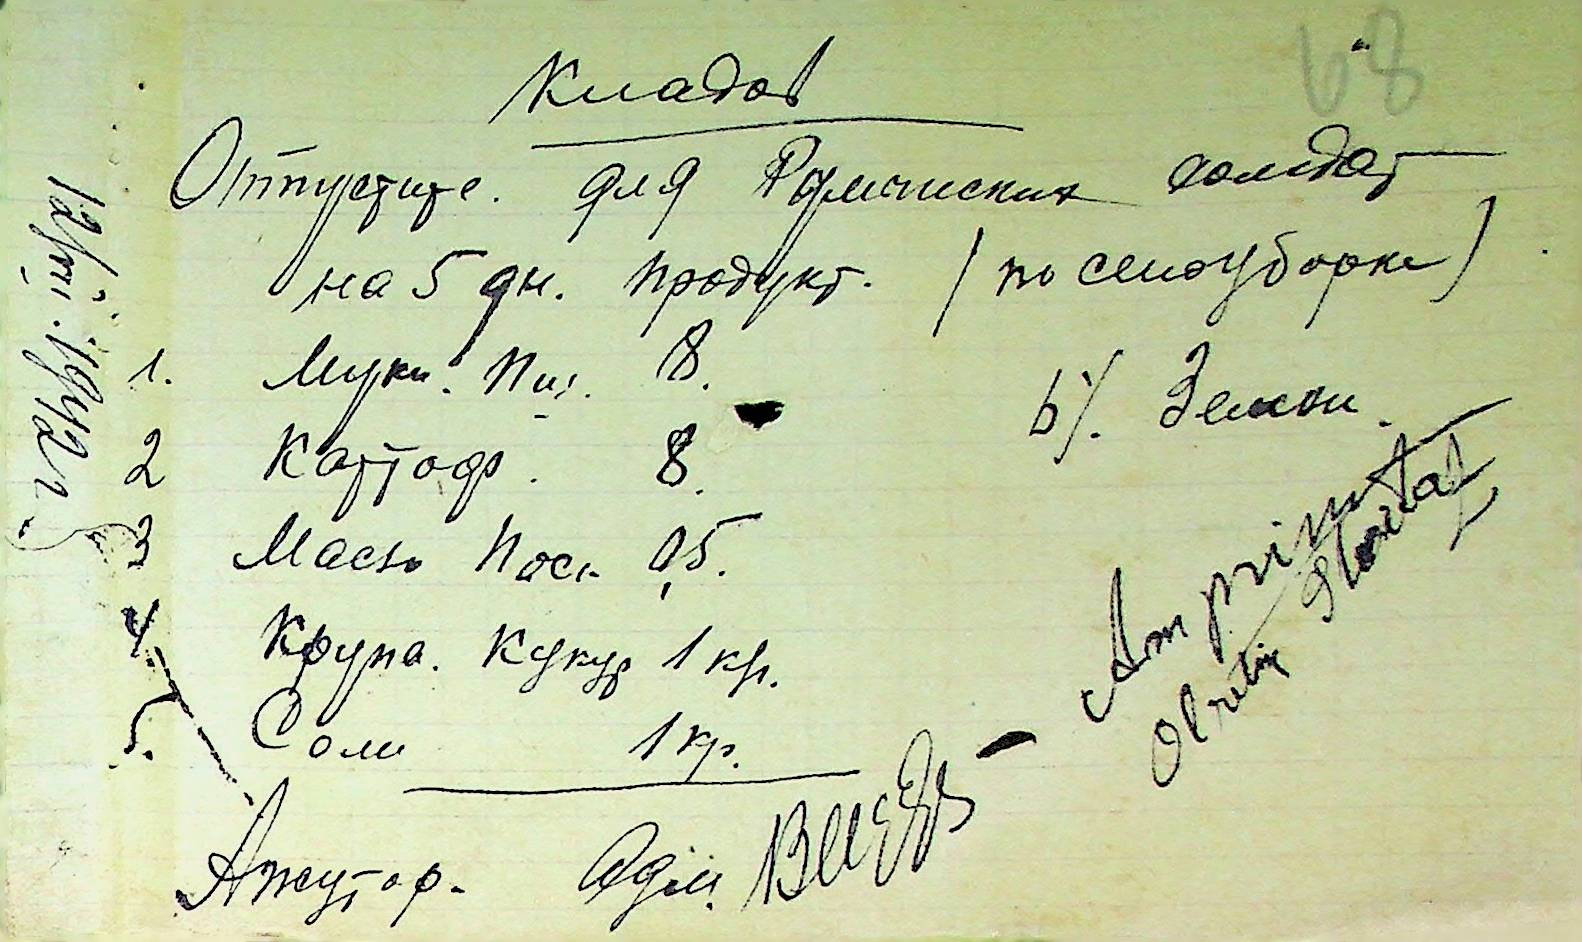 68
Кладов
Отпустите. для Румынских солдат
на 5 дн. продукт. (по сеноуборке)
1. Муки. Пш. 8.
б/. Земли.
2 Картоф. 8.
3 Масло Пост. 0,5.
4. Крупа. Кукур 1 кг.
5. Соли 1 кг.
Ажутор. Адм.
Am primit
12/VIII. 1942 г.